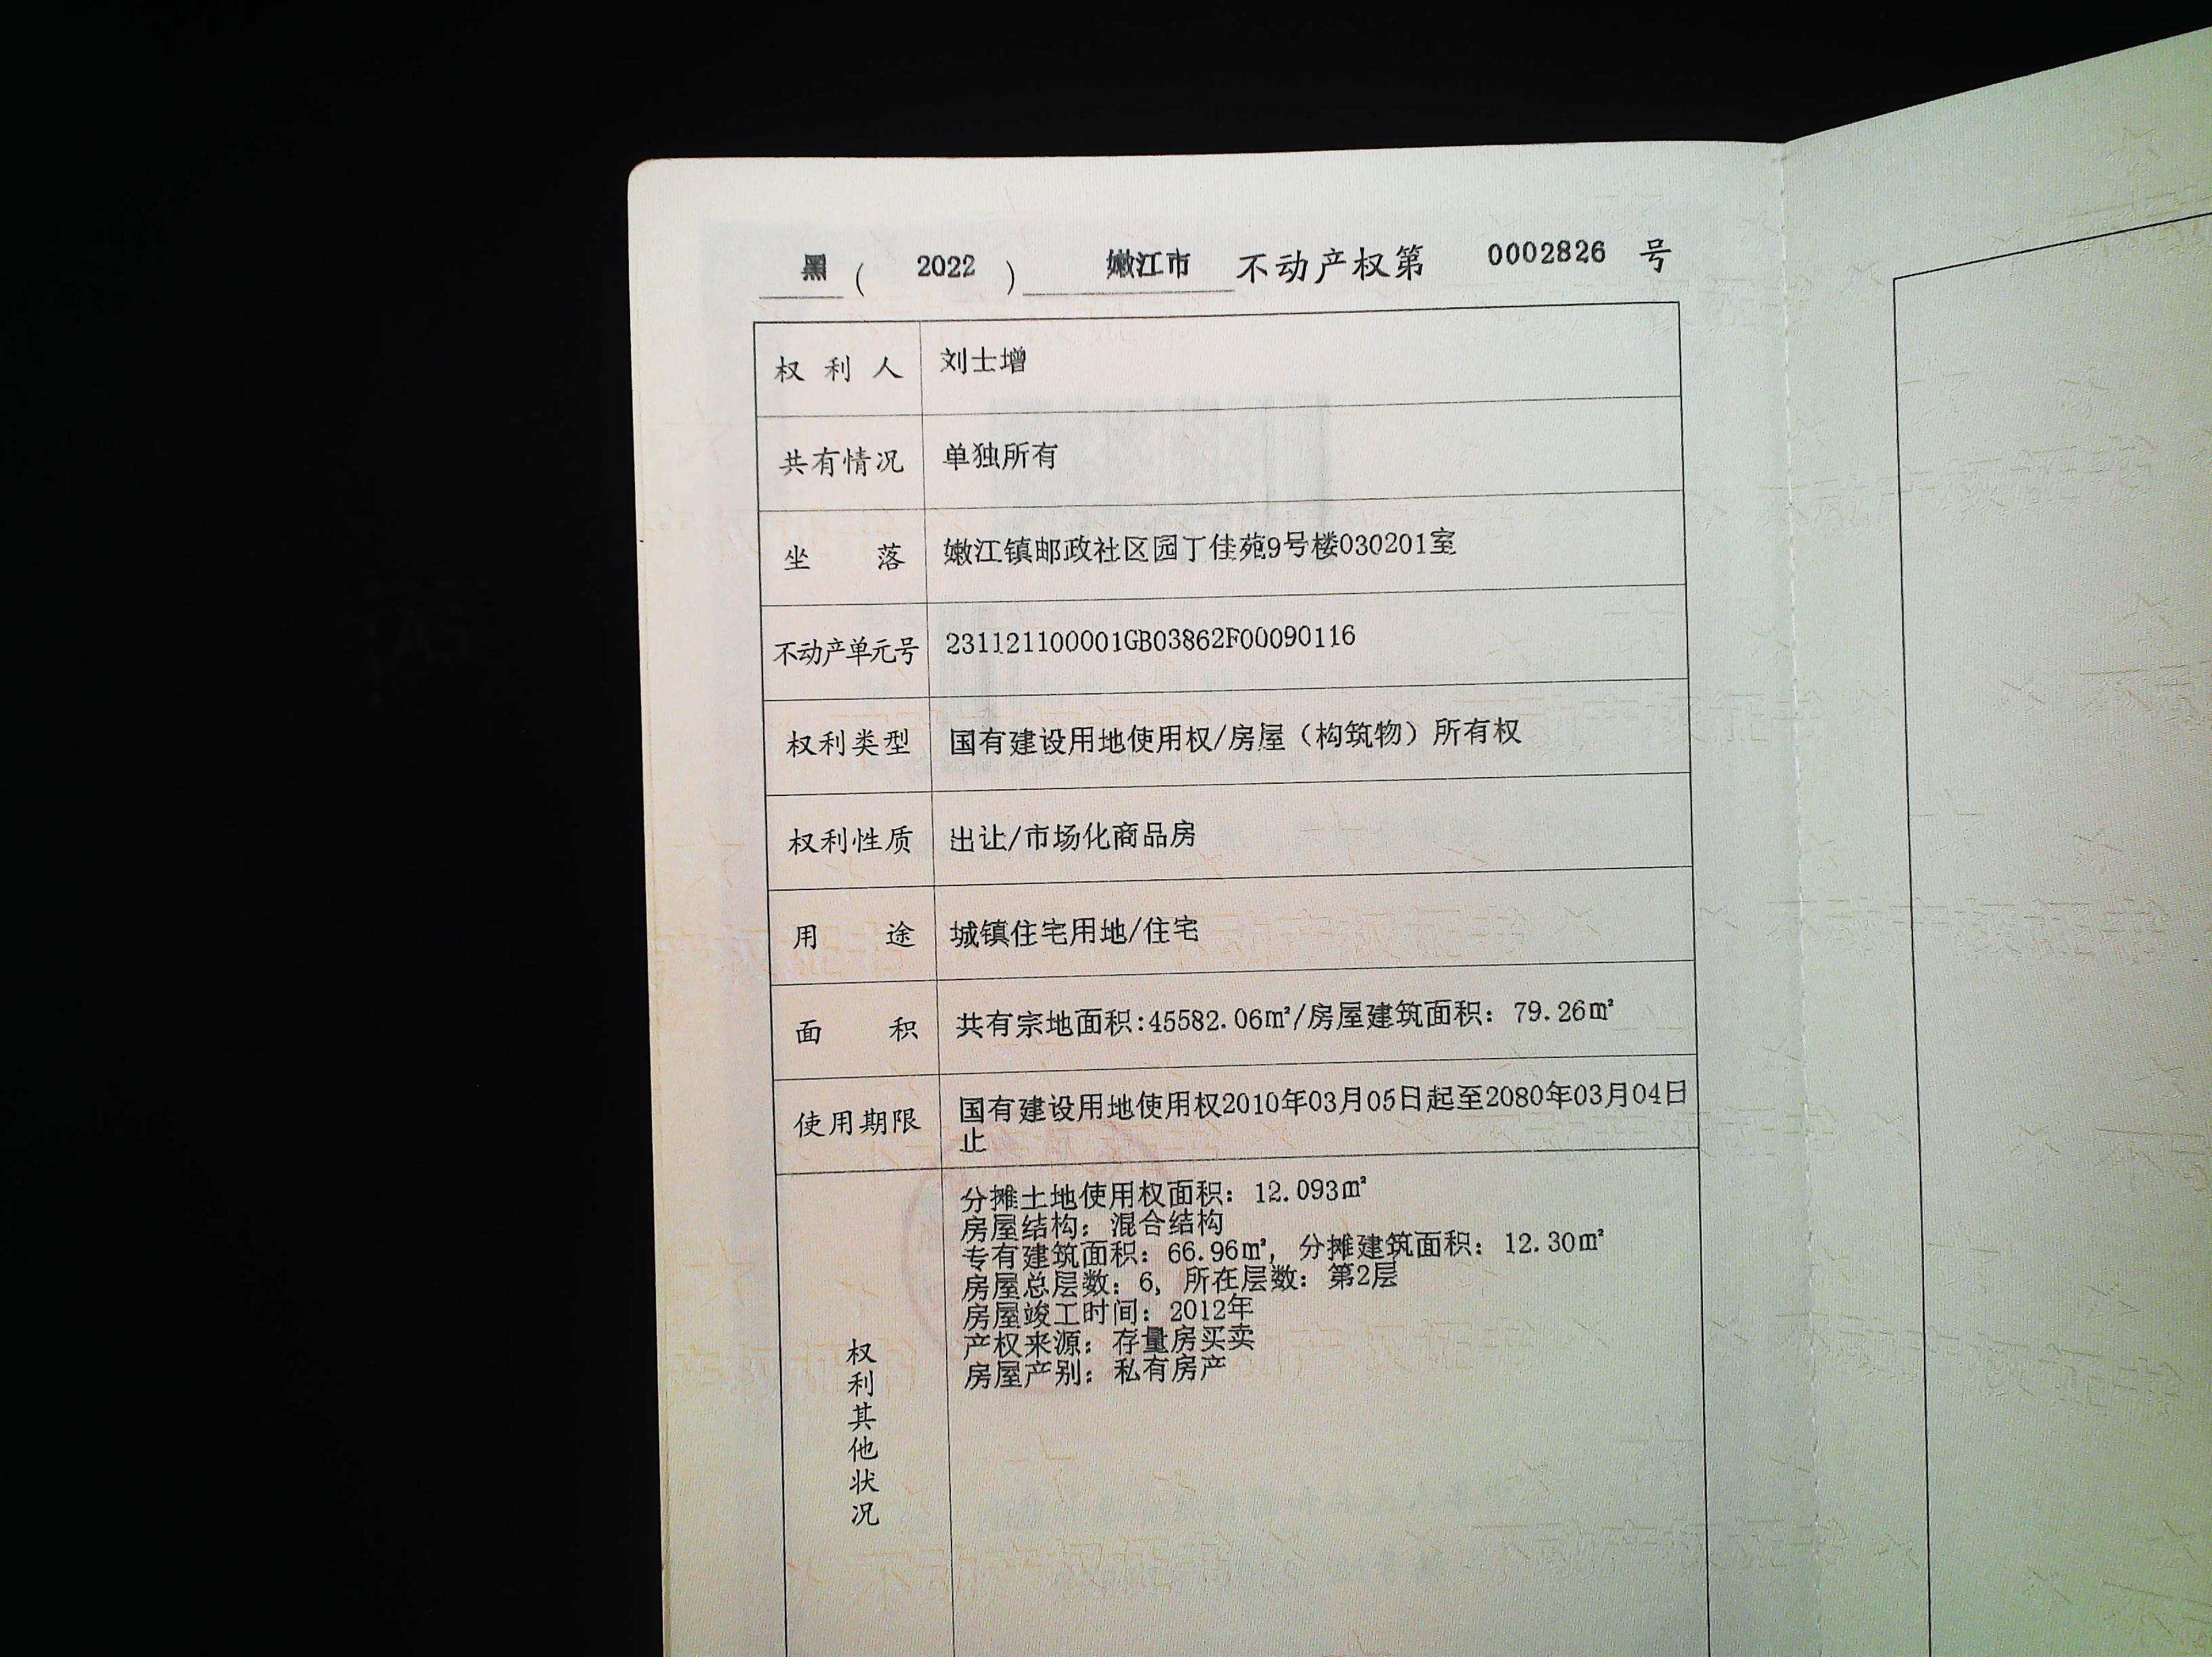 黑 ( 2022 ) 嫩江市 不动产权第 0002826 号
权利人 刘士增
共有情况 单独所有
坐落 嫩江镇邮政社区园丁佳苑9号楼030201室
不动产单元号 231121100001GB03862F00090116
权利类型 国有建设用地使用权/房屋（构筑物）所有权
权利性质 出让/市场化商品房
用途 城镇住宅用地/住宅
面积 共有宗地面积:45582.06㎡/房屋建筑面积：79.26㎡
使用期限 国有建设用地使用权2010年03月05日起至2080年03月04日
止
权利其他状况
分摊土地使用权面积：12.093㎡
房屋结构：混合结构
专有建筑面积：66.96㎡，分摊建筑面积：12.30㎡
房屋总层数：6，所在层数：第2层
房屋竣工时间：2012年
产权来源：存量房买卖
房屋产别：私有房产